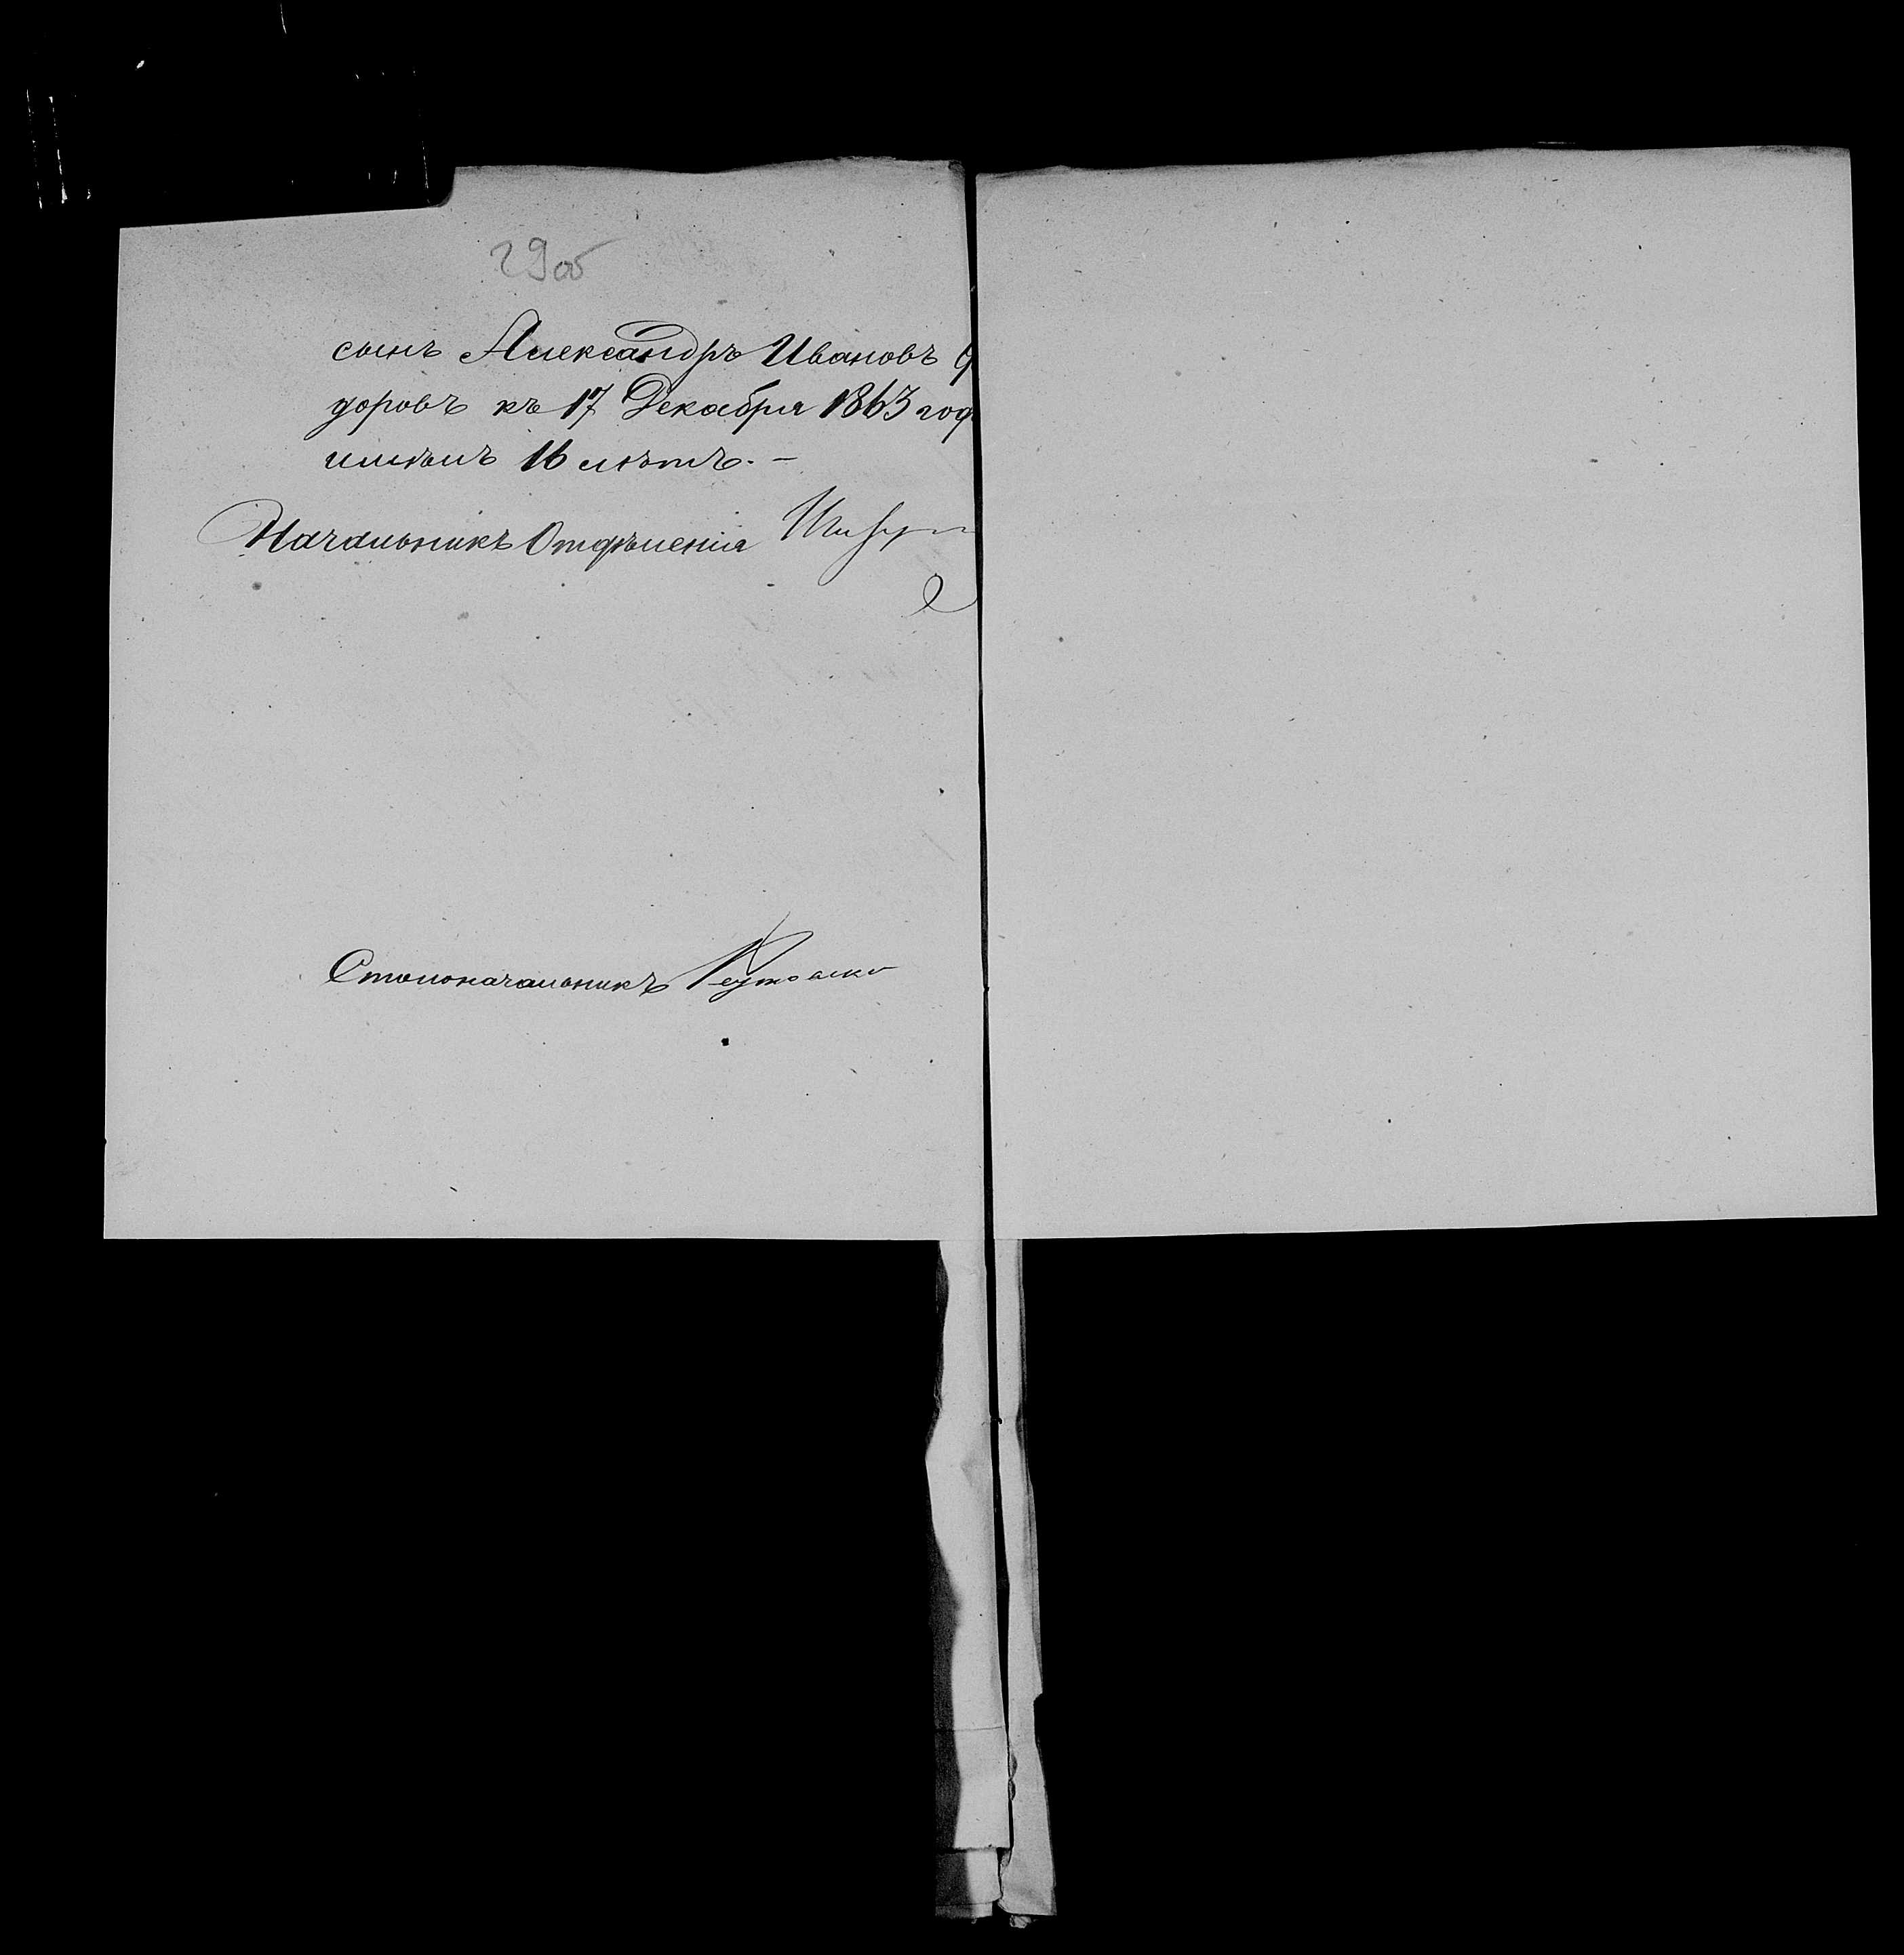 29об
сынъ Александръ Ивановъ
доровъ къ 17 Декабря 1863 год
имѣлъ 16 лѣтъ. –
Начальникъ Отдѣленія
Столоначальникъ